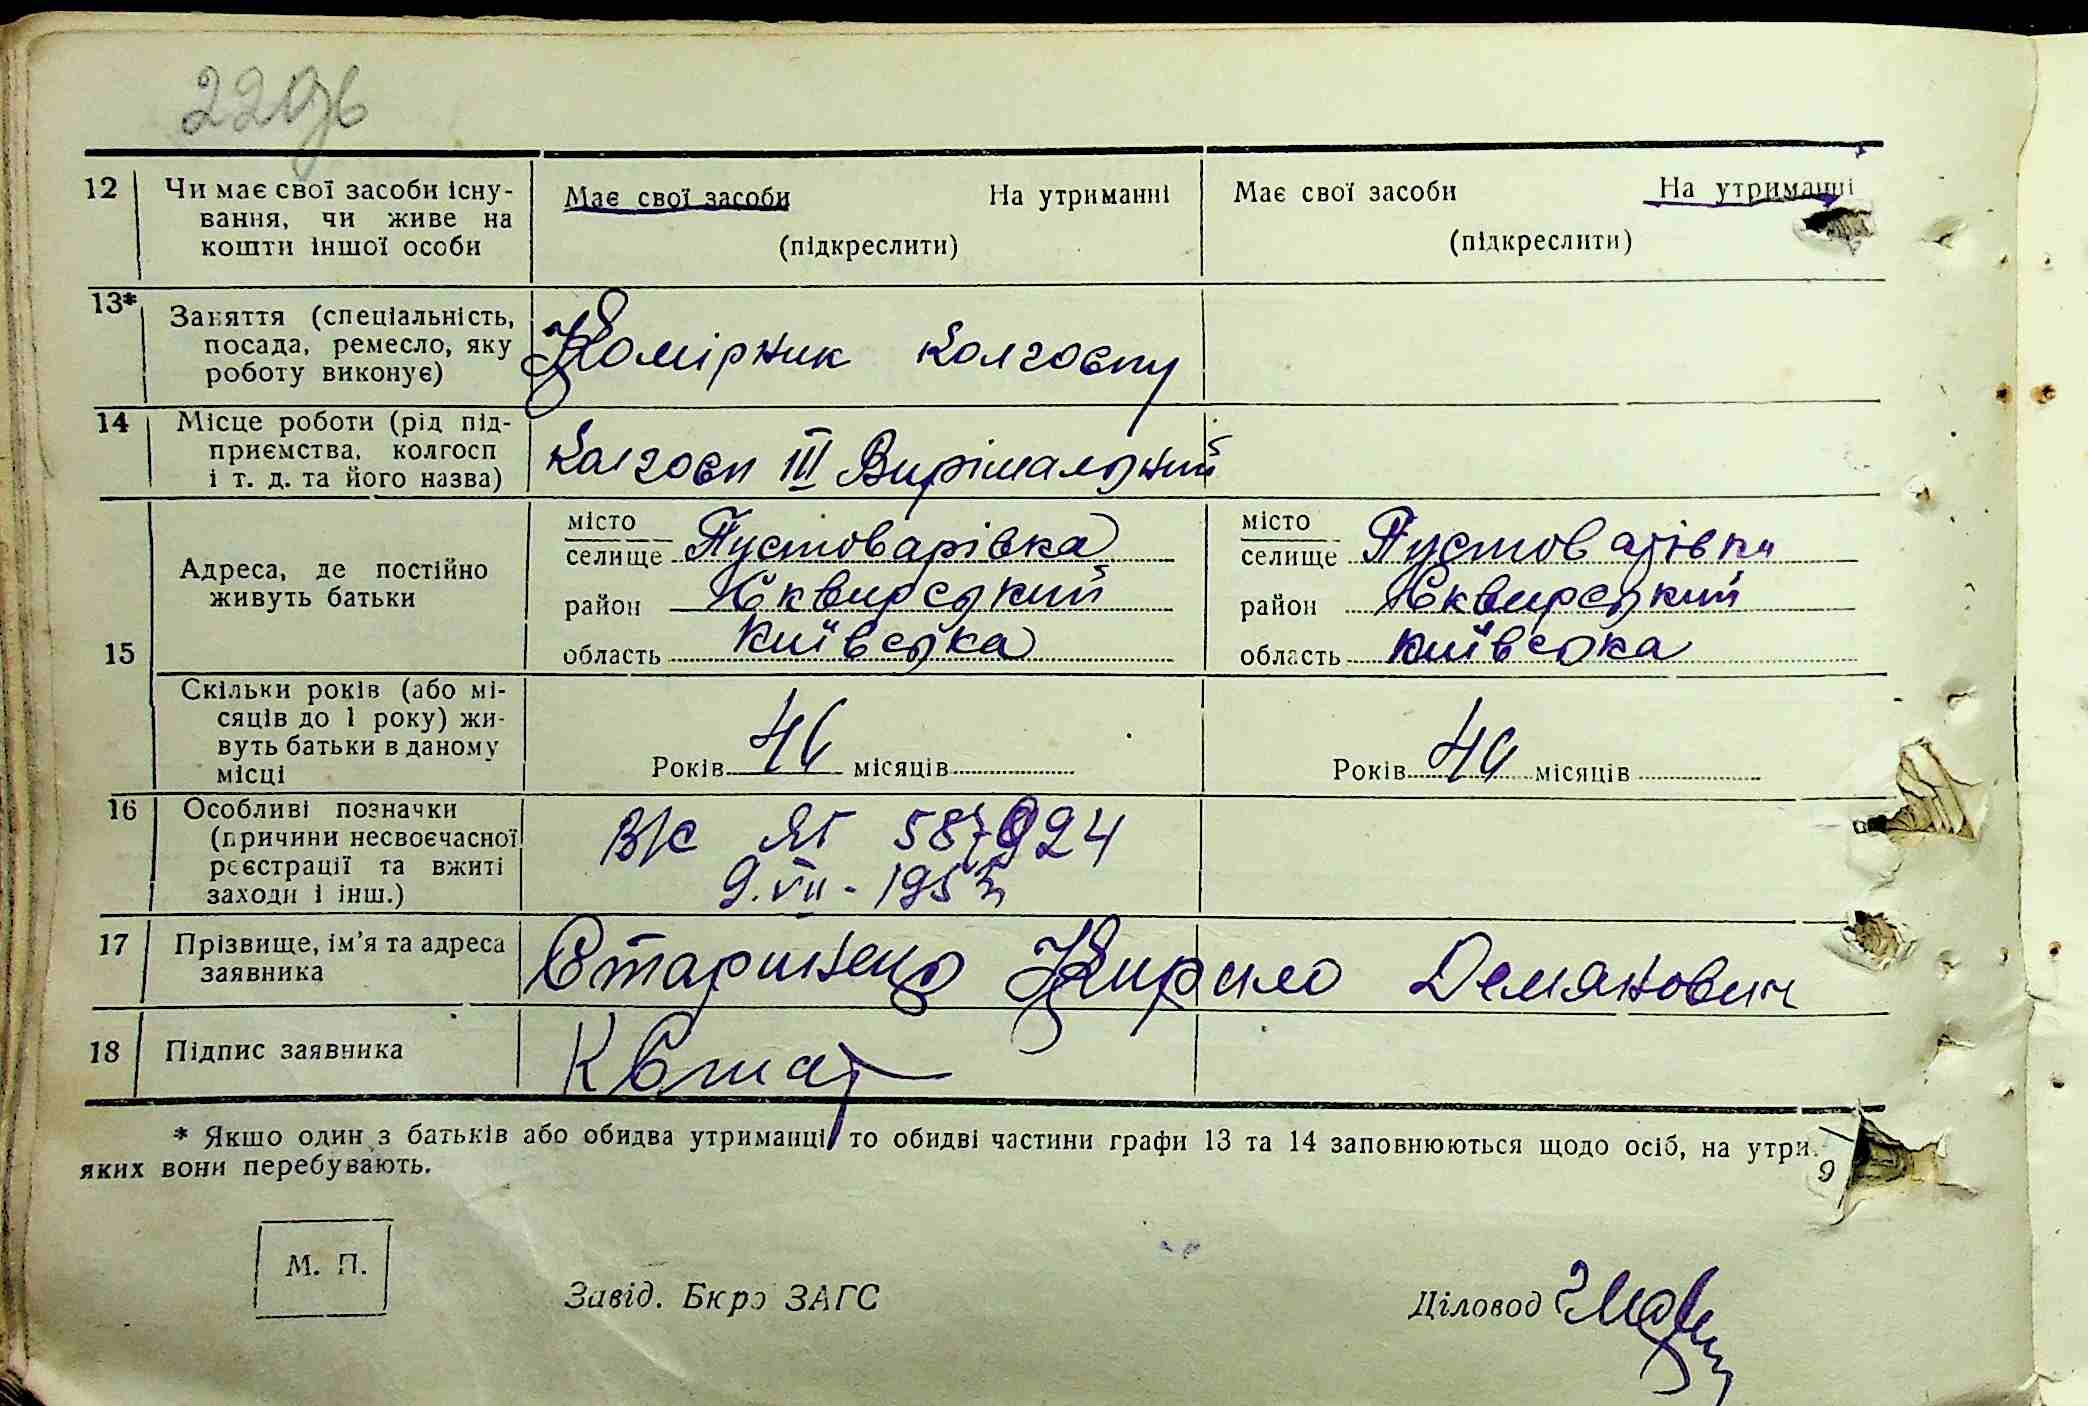 220
12 Чи має свої засоби існу-
вання, чи живе на
кошти іншої особи
Має свої засоби На утриманні
(підкреслити)
Має свої засоби На утриманні
(підкреслити)
13* Заняття (спеціальність,
посада, ремесло, яку
роботу виконує)
Комірник колгоспу
14 Місце роботи (рід під-
приємства, колгосп
і т. д. та його назва)
Колгосп III Вирішальний
15
Адреса, де постійно
живуть батьки
місто
селище Пустоварівка
район Сквирський
область Київська
місто
селище Пустоварівка
район Сквирський
область Київська
Скільки років (або мі-
сяців до 1 року) жи-
вуть батьки в даному
місці
Років 46 місяців
Років 40 місяців
16 Особливі позначки
(причини несвоєчасної
реєстрації та вжиті
заходи і інш.)
В/с ЯГ 924
9. VII - 195
17 Прізвище, ім'я та адреса
заявника
Кирило Демянович
18 Підпис заявника
* Якшо один з батьків або обидва утриманці, то обидві частини графи 13 та 14 заповнюються щодо осіб, на утри
яких вони перебувають.
9
М. П.
Завід. Бюро ЗАГС
Діловод